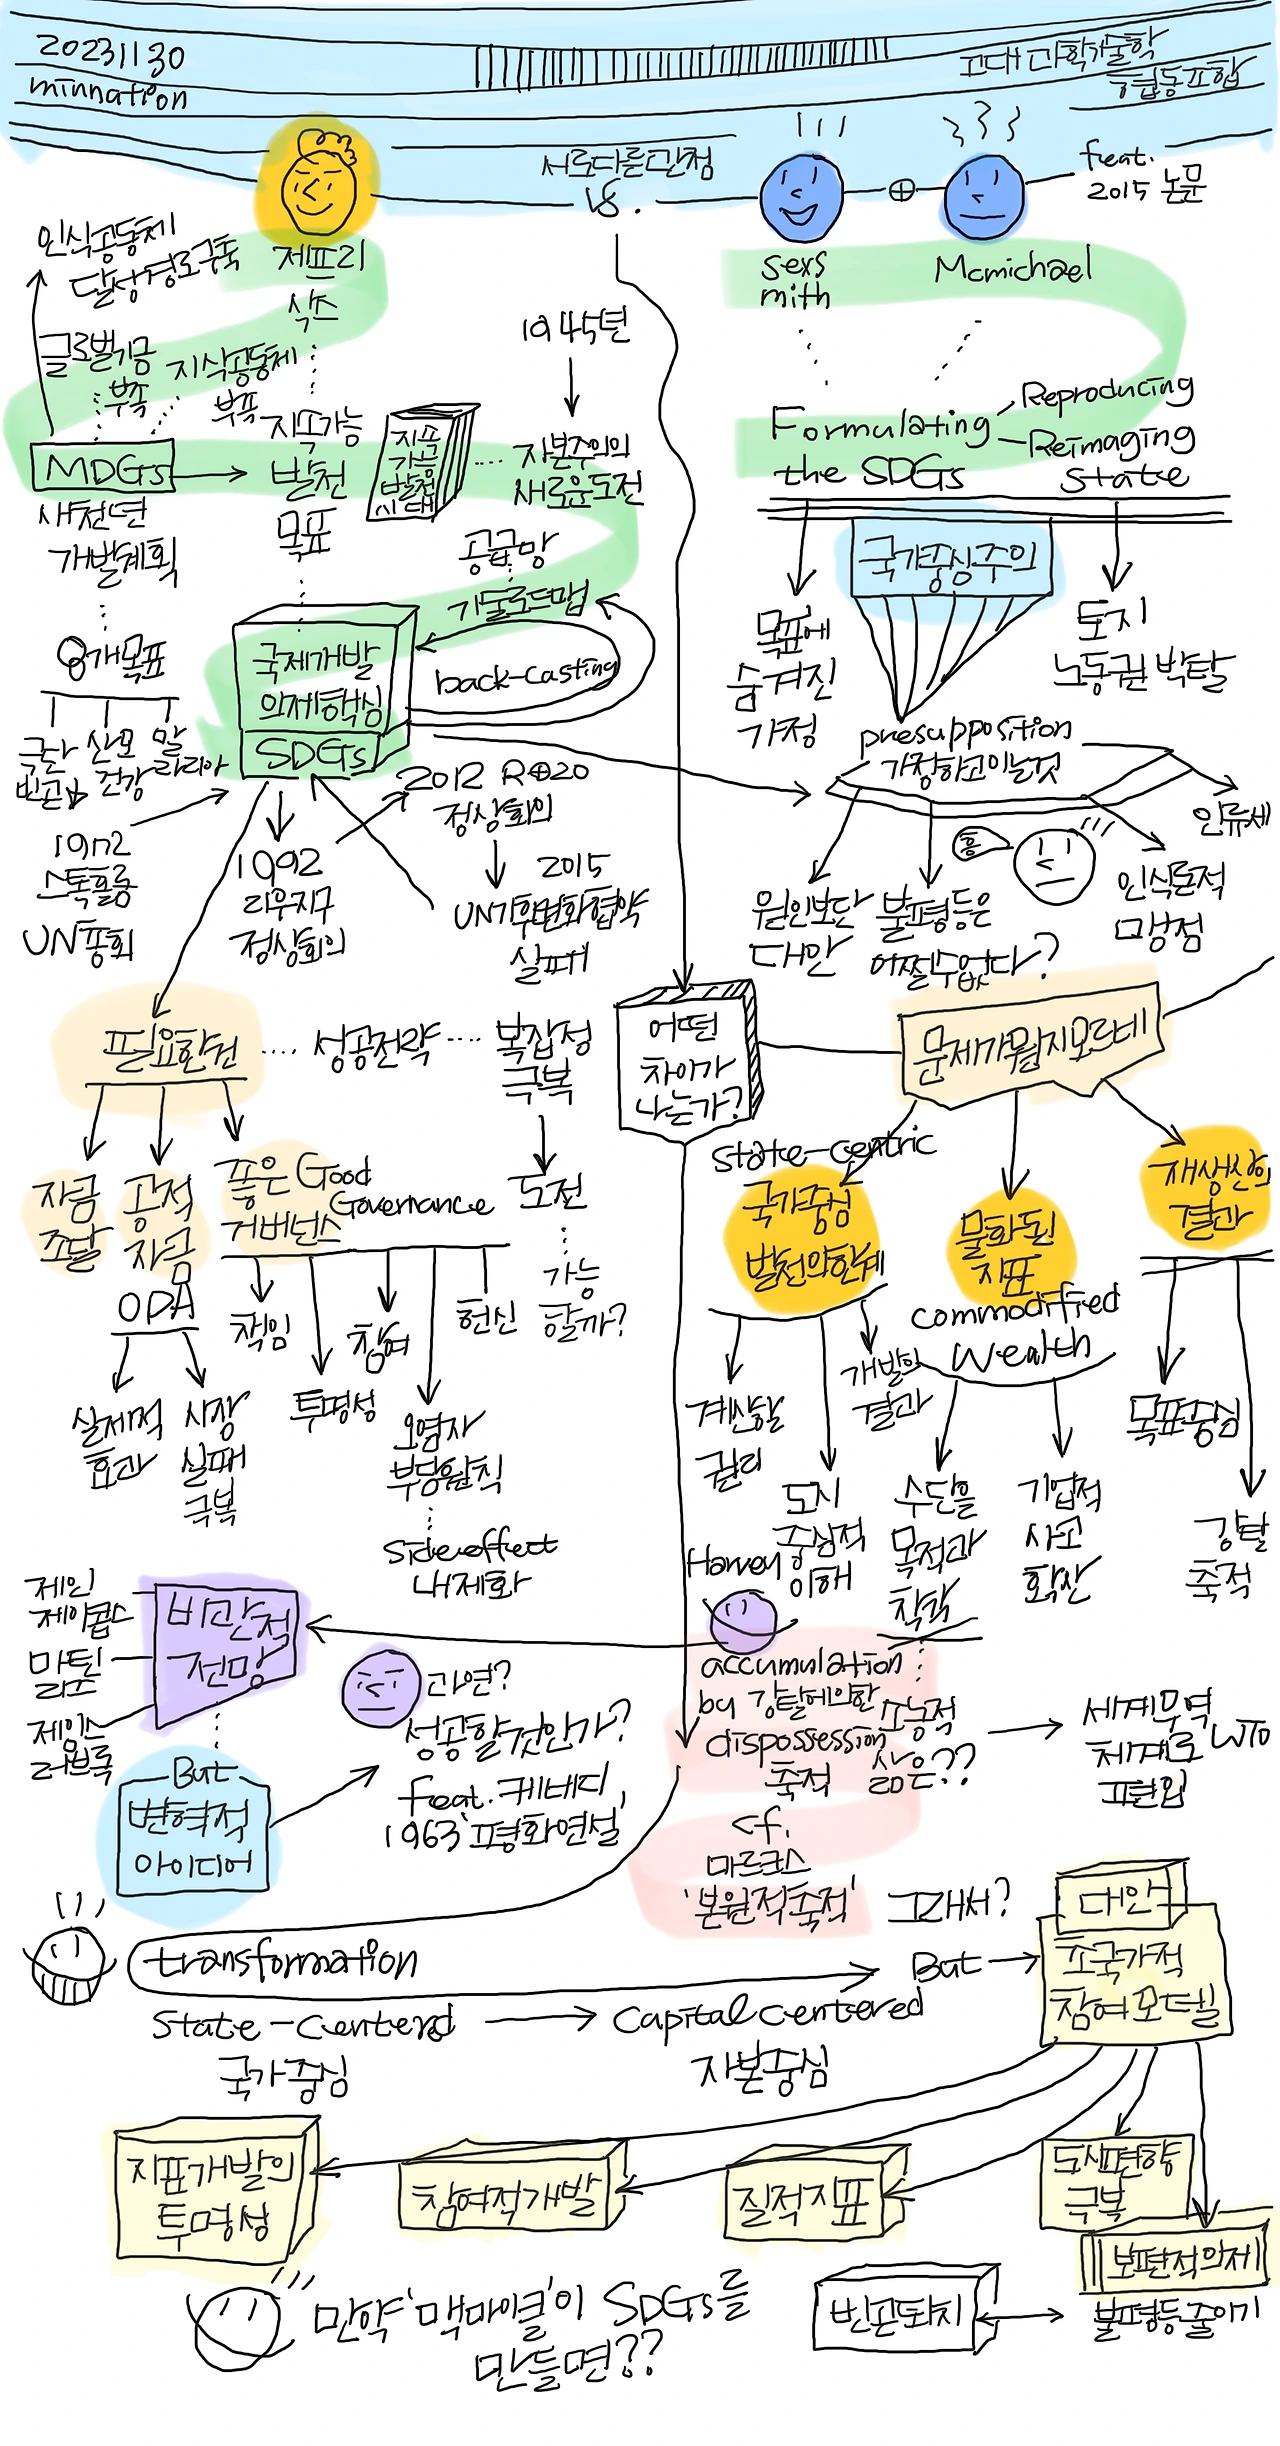 20231130
minnation
고대 과학기술학
협동포합
서로다른관점
VS.
feat.
2015 논문
제프리
삭스
sexs
mith
Mcmichael
인식공동체
달성경로구축
글로벌기금
부족
지식공동체
부족
MDGs
새천년
개발계획
8개목표
극단
빈곤
산모
건강
말
라리아
지속가능
발전
목표
지속
가능
발전
시대
1945년
자본주의의
새로운도전
공급망
기술로드맵
back-casting
국제개발
의제핵심
SDGs
1972
스톡홀름
UN총회
1992
리우지구
정상회의
2012 R⊕20
정상회의
2015
UN기후변화협약
실패
Formulating
the SDGs
Reproducing
Reimaging
state
국가중심주의
목표에
숨겨진
가정
토지
노동권 박탈
presupposition
가정하고있는것
인류세
흠
원인보단
대안
불평등은
어쩔수없다?
인식론적
맹점
필요한건
성공전략
복잡성
극복
어떤
차이가
나는가?
문제가뭔지모르네
자금
조달
공적
자금
좋은 Good
거버넌스 Governance
도전
가능
할까?
ODA
책임
참여
헌신
투명성
실제적
효과
시장
실패
극복
오염자
부담원칙
side effect
내제화
state-centric
국가중심
발전의한계
물화된
지표
commodified
wealth
재생산의
결과
계산할
권리
도시
중심적
이해
개발의
결과
수단을
목적과
착각
기업적
사고
확산
목표중심
강탈
축적
제인
제이콥스
마틴
리즈
제임스
러브록
비관적
전망
But
변혁적
아이디어
과연?
성공할것인가?
feat. 케네디
1963 '평화연설'
Harvey
accumulation
by 강탈에의한
dispossession
축적
소농적
삶은??
세계무역
체계로 WTO
편입
cf.
마르크스
'본원적축적'
그래서?
transformation
State-Centerd
국가중심
Capital centered
자본중심
But
대안
초국가적
참여모델
지표개발의
투명성
참여적개발
질적지표
도시편향
극복
보편적의제
만약 '맥마이클'이 SDGs를
만들면??
빈곤퇴치
불평등줄이기